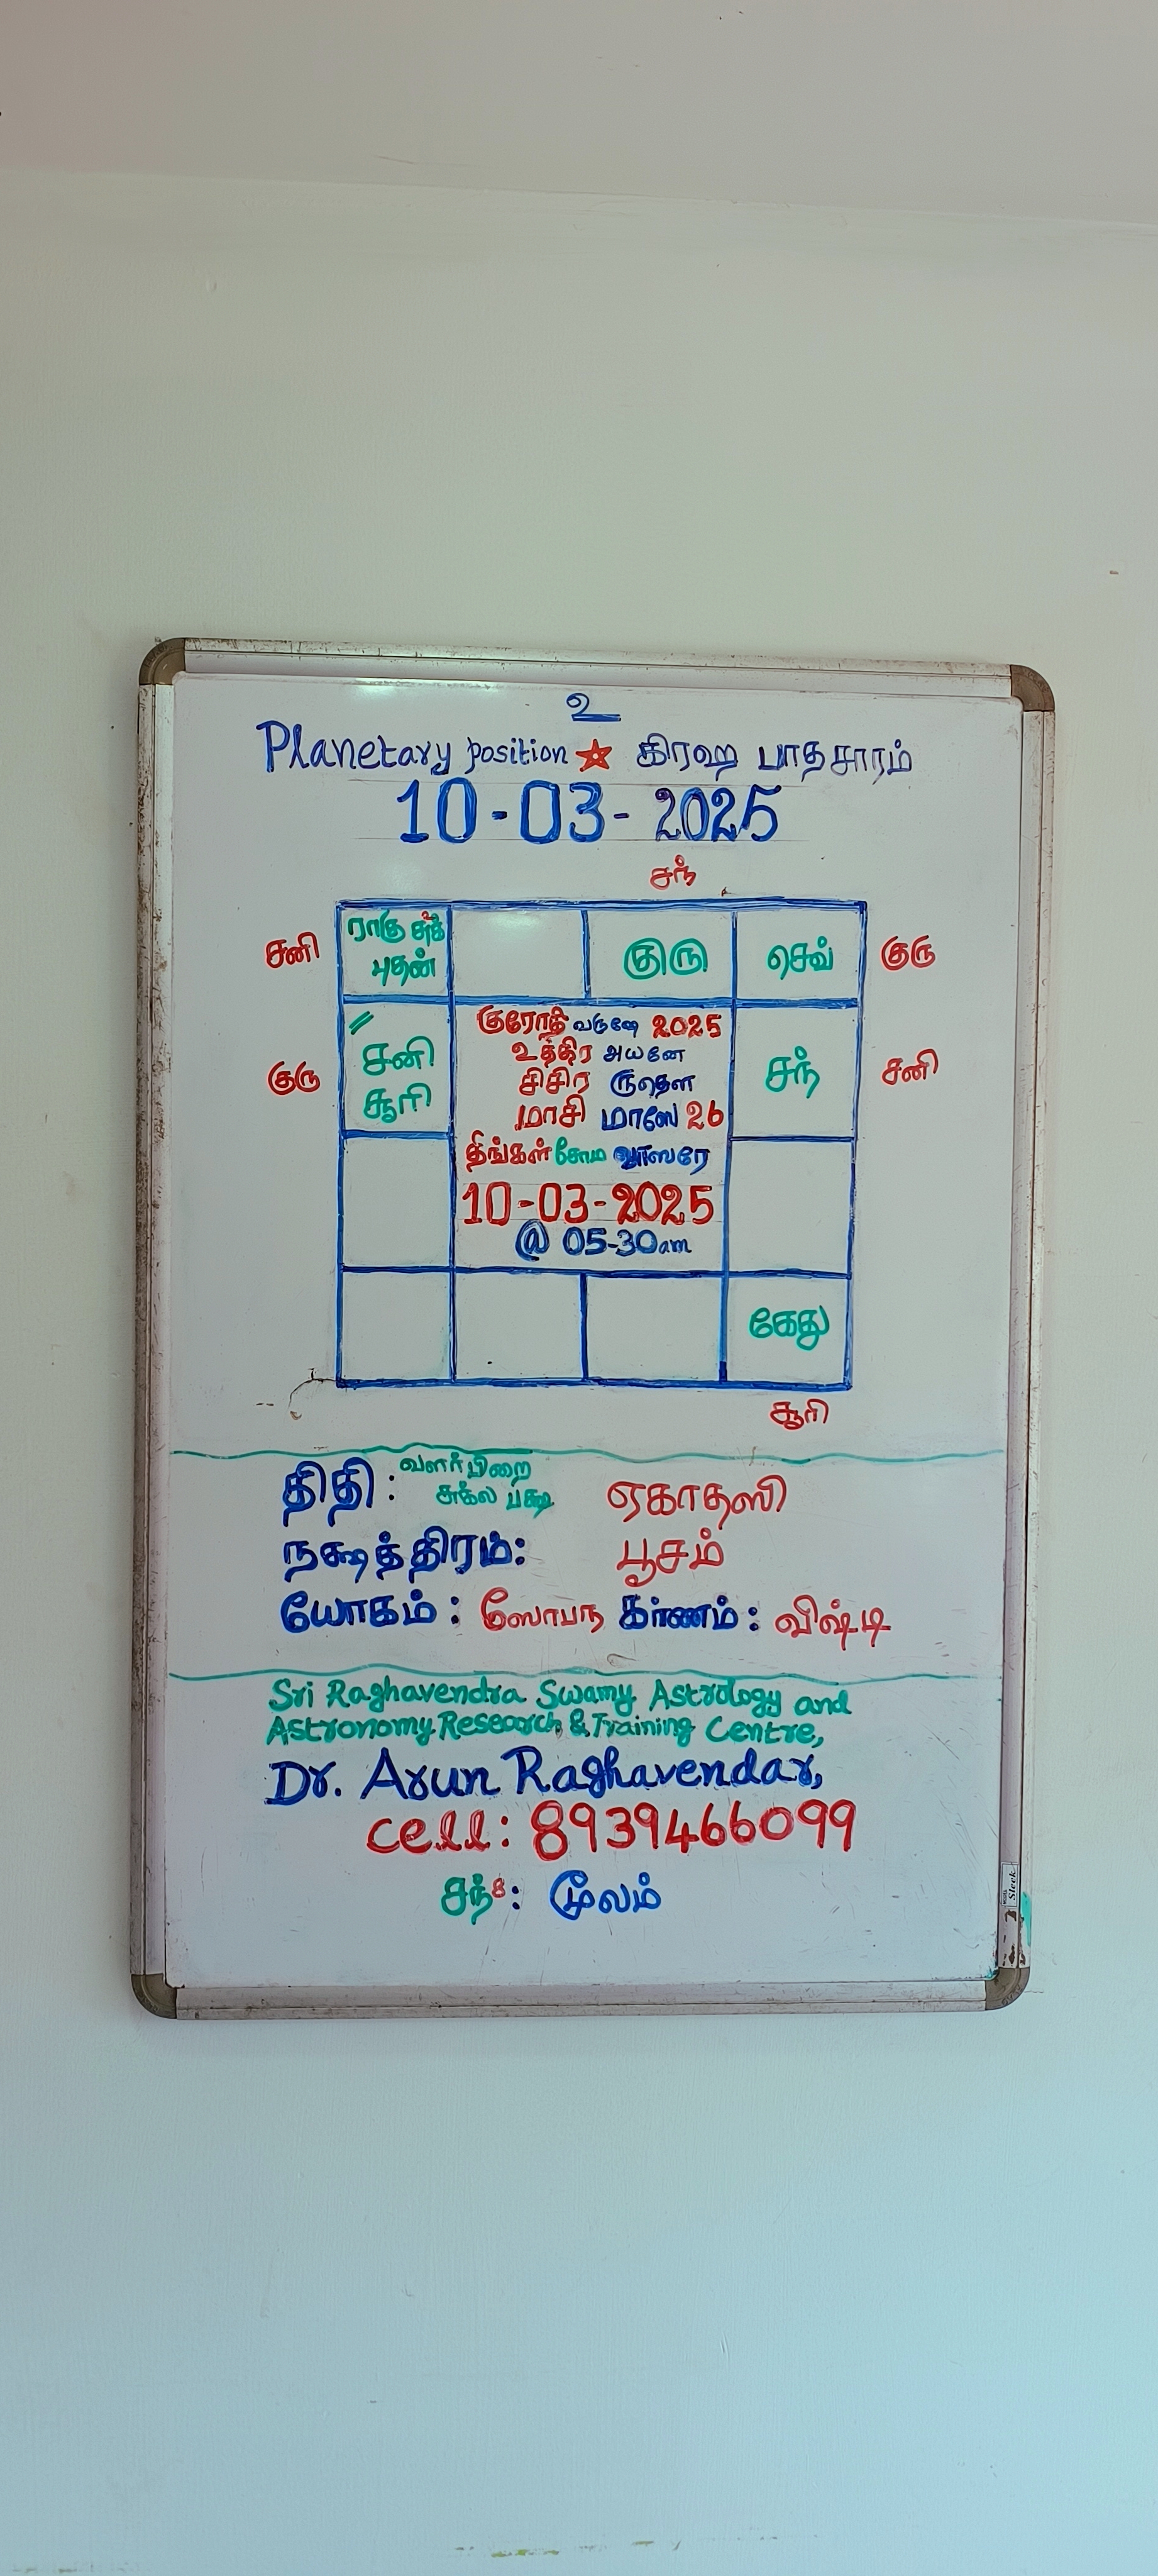 உ
Planetary position ★ கிரஹ பாதசாரம்
10-03-2025
சந்
சனி ராகு சுக் குரு செவ் குரு
புதன்
குரோதி வருஷே 2025
உத்திர அயனே
குரு சனி சிசிர ருதௌ சந் சனி
சூரி மாசி மாஸே 26
திங்கள் சோம வாஸரே
10-03-2025
@ 05-30am
கேது
சூரி
திதி : வளர்பிறை
சுக்ல பக்ஷ ஏகாதஸி
நக்ஷத்திரம்: பூசம்
யோகம் : ஸோபந கர்ணம் : விஷ்டி
Sri Raghavendra Swamy Astrology and
Astronomy Research & Training Centre,
Dr. Arun Raghavendar,
cell: 8939466099
சந்8: மூலம்
Sleek